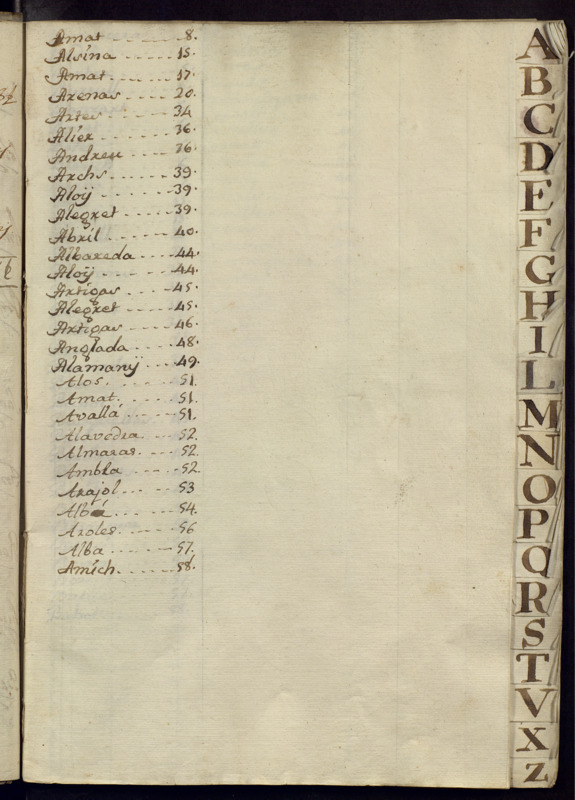 Amat 8.
Alsína 15.
Amat 17.
Arenas 20.
Artes 34
Alier 36.
Andreu 36.
Archs 39.
Aloÿ 39.
Alegret 39.
Abríl 40.
Albareda 44.
Aloÿ 44.
Artigas 45.
Alegret 45.
Artigas 46.
Anglada 48.
Alamanÿ 49.
Alos 51.
Amat 51.
Avallá 51.
Alavedra 52.
Almaras 52.
52
Arajol 53
Albá 54.
Aroles 56
Alba 57.
Amích 58.
A
B
C
D
E
F
G
H
I
L
M
N
O
P
Q
R
S
T
V
X
Z